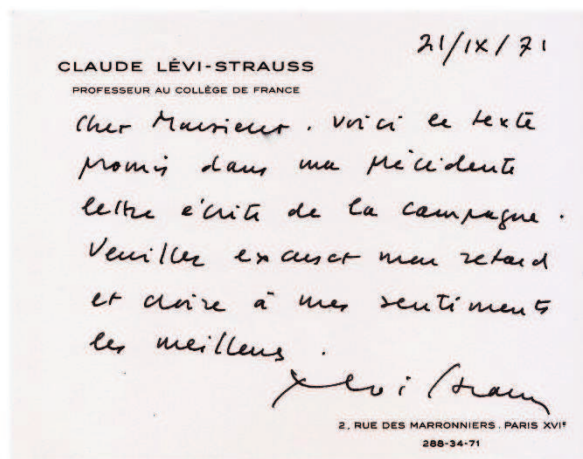 21/IX/71
CLAUDE LÉVI-STRAUSS
PROFESSEUR AU COLLÈGE DE FRANCE
Cher Monsieur. Voici le texte
promis dans ma précédente
lettre écrite de la campagne.
Veuillez excuser mon retard
et croire à mes sentiments
les meilleurs.
Lévi Strauss
2, RUE DES MARRONNIERS. PARIS XVIᵉ
288-34-71